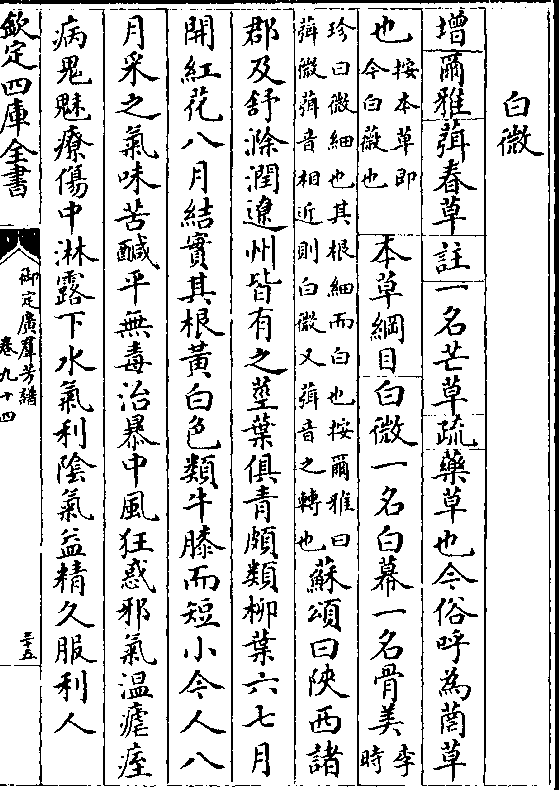 白微
增爾雅葞春草註一名芒草疏藥草也今俗呼為䒽草
也按本草即今白薇也本草綱目白微一名白幕一名骨美李時
珍曰微細也其根細而白也按爾雅曰葞微葞音相近則白微又葞音之轉也蘇頌曰陜西諸
郡及舒滁潤遼州皆有之莖葉俱青頗類柳葉六七月
開紅花八月結實其根黃白色類牛膝而短小今人八
月采之氣味苦鹹平無毒治暴中風狂惑邪氣温瘧痓
病鬼魅療傷中淋露下水氣利陰氣益精久服利人
欽定四庫全書
御定廣羣芳譜
卷九十四
三十五